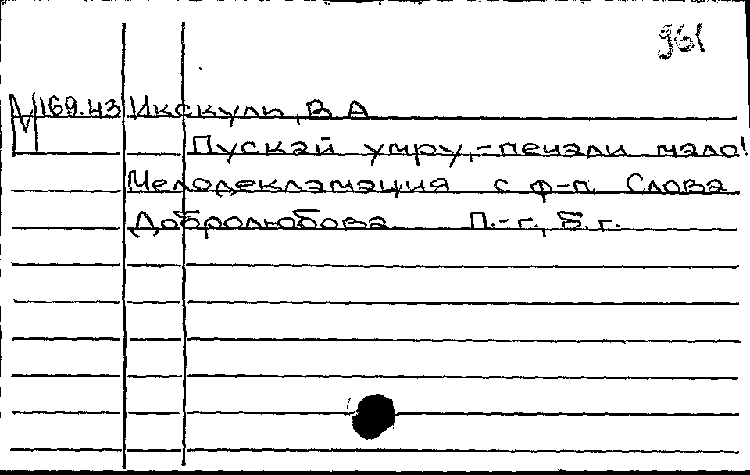 961
М 169.43 Икскуль, В А
Пускай умру,-печали мало!
Мелодекламация с ф-п. Слова
Добролюбова П.-г., Б. г.